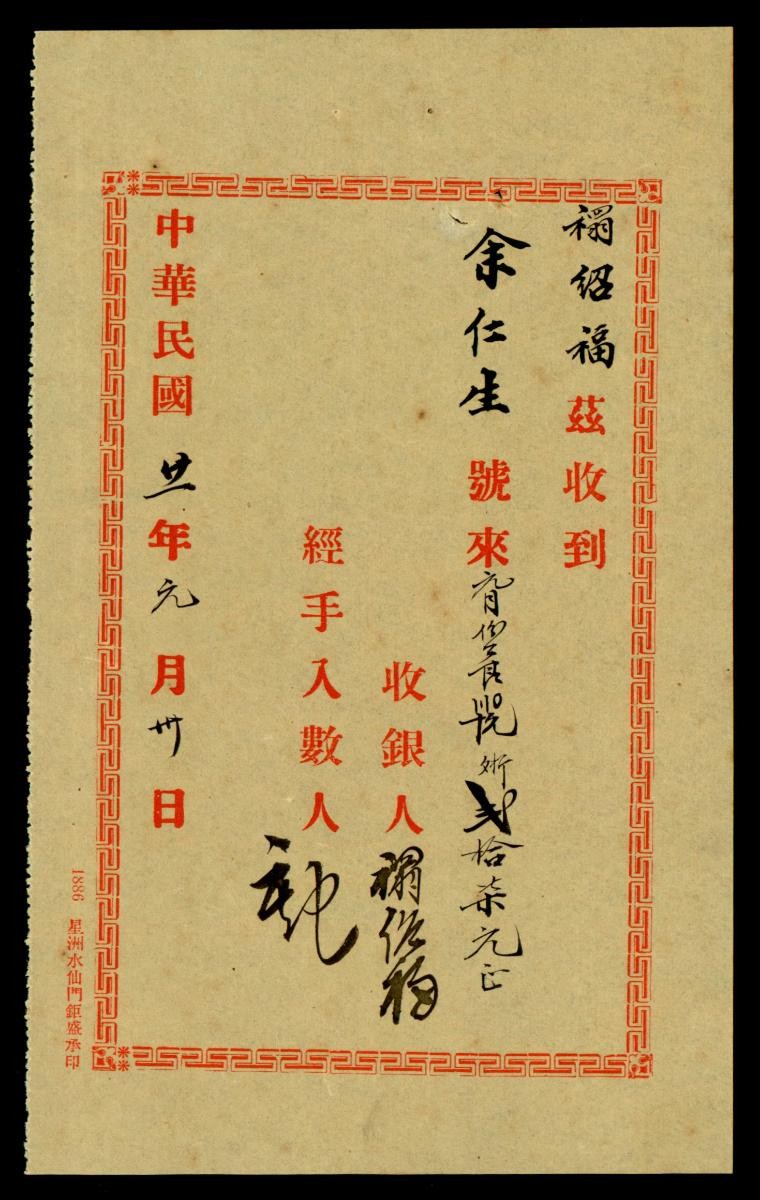 禤紹福茲收到
余仁生號來 弍拾柒元正
收銀人 禤紹福
經手入數人
中華民國廿一年元月卅日
1886 星洲水仙門鉅盛承印